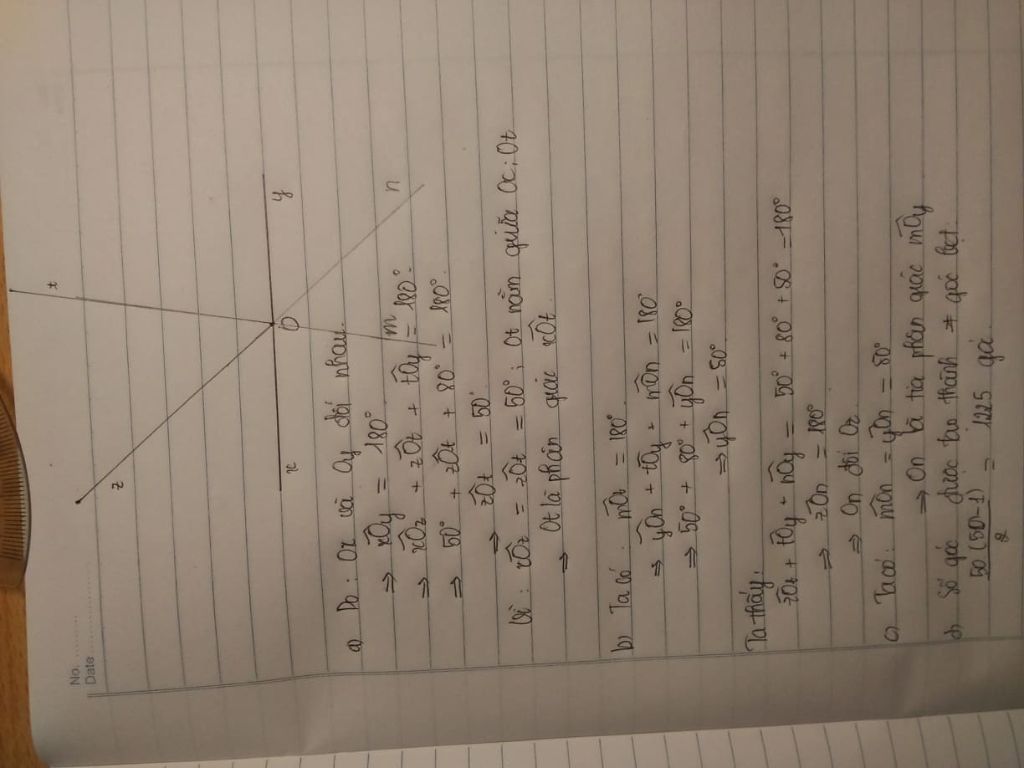 No.
Date
z
t
x
O
y
m
n
a) Do: Ox và Oy đối nhau.
=> xOy = 180°
=> xOz + zOt + tOy = 180°.
=> 50° + zOt + 80° = 180°.
=> zOt = 50°
Vì: xOz = zOt = 50°; Ot nằm giữa
=> Ot là phân giác xOt
b) Ta có:
=> yOn + tOy + mOn = 180°
=> 50° + 80° + yOn = 180°
=> yOn = 50°
Ta thấy.
zOt + tOy + nOy = 50° + 80° + 50° = 180°
=> zOn = 180°
=> On đối Oz
c) Ta có: mOn = yOn = 50°
=> On là tia phân giác mOy
d) Số góc được tạo thành ≠ góc bẹt.
50(50-1) / 2 = 1225 góc.